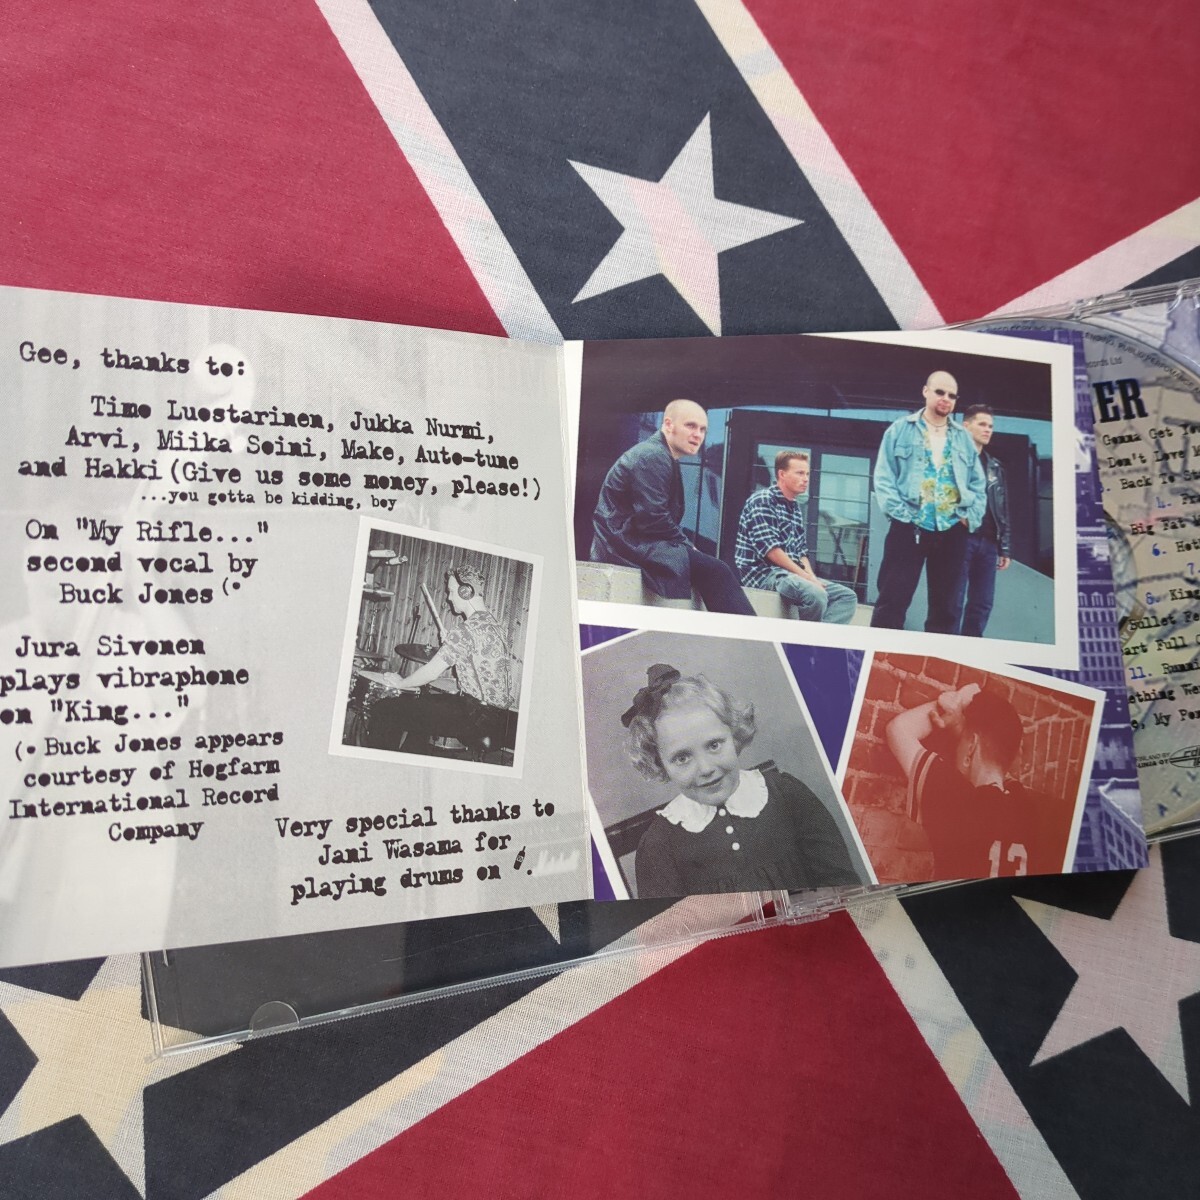 Gee, thanks to:
Timo Luostarinen, Jukka Nurmi,
Arvi, Miika Soini, Make, Auto-tune
and Hakki (Give us some money, please!)
...you gotta be kidding, boy
On "My Rifle..."
second vocal by
Buck Jones (•
Jura Sivonen
plays vibraphone
on "King..."
(• Buck Jones appears
courtesy of Hogfarm
International Record
Company
Very special thanks to
Jani Wasama for
playing drums on
13
ER
Gonna Get
Don't Love
Back To
Big Fat
6.
7.
8. King
Bullet
art Full
11.
My